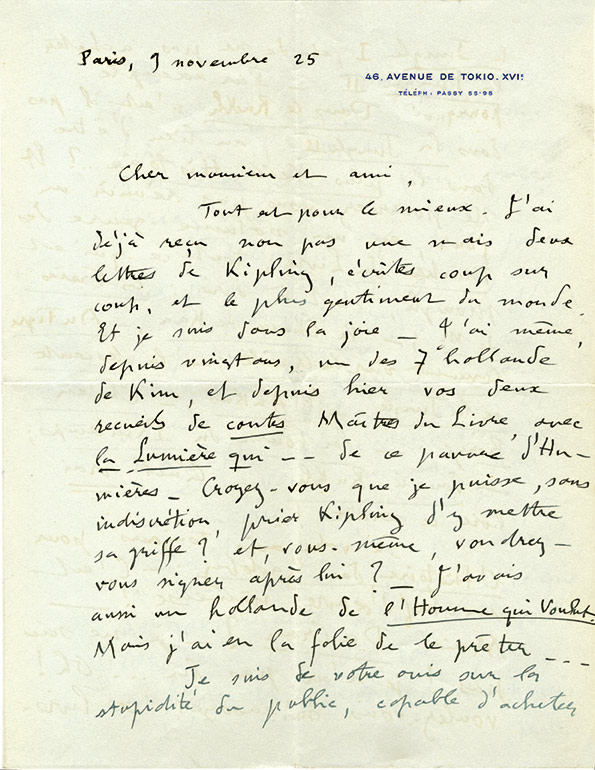 Paris, 9 novembre 25
46, AVENUE DE TOKIO. XVIE
TÉLÉPH : PASSY 55-95
Cher monsieur et ami,
Tout est pour le mieux. J'ai
déjà reçu non pas une mais deux
lettres de Kipling, écrites coup sur
coup, et le plus gentiment du monde.
Et je suis dans la joie – J'ai même,
depuis vingt ans, un des 7 hollande
de Kim, et depuis hier vos deux
recueils de contes Maîtres du Livre, avec
la Lumière qui – – de ce pauvre d'Hu-
mières – Croyez-vous que je puisse, sans
indiscrétion, prier Kipling d'y mettre
sa griffe ? et vous-même, voudrez-
vous signer après lui ? J'avais
aussi un hollande de l'Homme qui Voulut.
Mais j'ai eu la folie de le prêter – – –
Je suis de votre avis sur la
stupidité du public, capable d'acheter